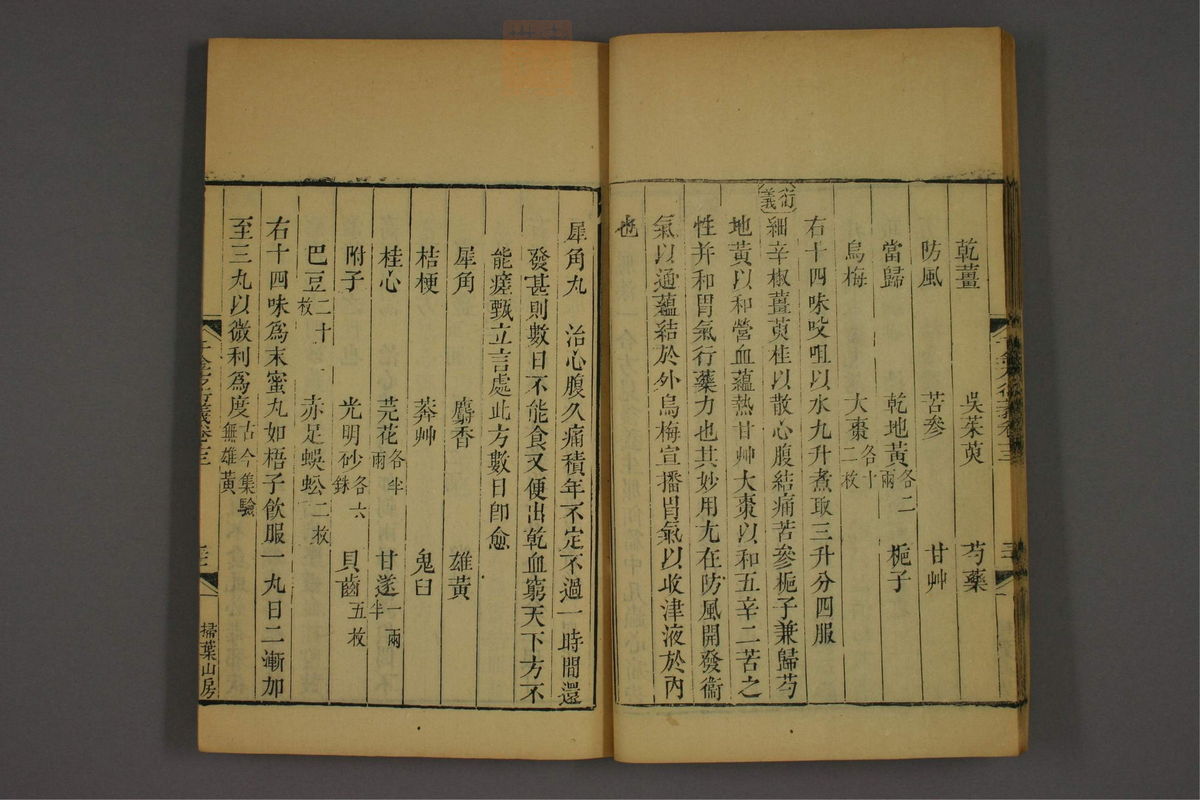 乾薑　吳茱萸　芍藥
防風　苦參　甘艸
當歸　乾地黃各二兩　梔子
烏梅　大棗各十二枚
右十四味㕮咀以水九升煮取三升分四服
衍義　細辛椒薑萸桂以散心腹結痛苦參梔子兼歸芍
地黃以和營血蘊熱甘艸大棗以和五辛二苦之
性并和胃氣行藥力也其妙用尢在防風開發衞
氣以通蘊結於外烏梅宣播胃氣以收津液於內
也
犀角丸　治心腹久痛積年不定不過一時間還
發甚則數日不能食又便出乾血窮天下方不
能瘥甄立言處此方數日卽愈
犀角　麝香　雄黃
桔梗　莽艸　鬼臼
桂心　芫花各半兩　甘遂一兩半
附子　光明砂各六銖　貝齒五枚
巴豆二十枚　赤足蜈蚣二枚
右十四味爲末蜜丸如梧子飮服一丸日二漸加
至三丸以微利爲度古今集驗無雄黃
千金方衍義卷十三
掃葉山房